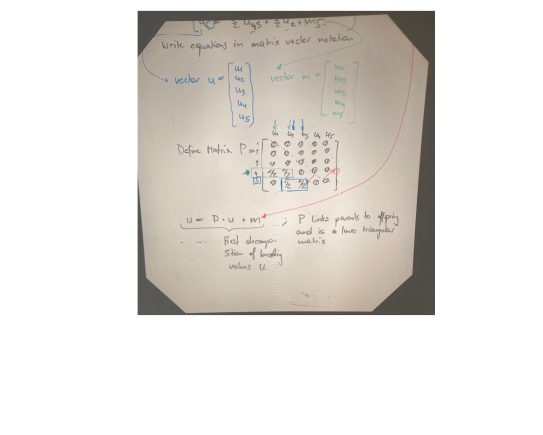 u5 = 1/2 u3 + 1/2 u2 + m5
Write equations in matrix vector notation
vector u = [u1 u2 u3 u4 u5]
vector m = [m1 m2 m3 m4 m5]
u1 u2 u3 u4 u5
Define Matrix P =
1 0 0 0 0 0
2 0 0 0 0 0
3 0 0 0 0 0
4 1/2 1/2 0 0 0
5 0 1/2 1/2 0 0
u = P · u + m ; P links parents to offspring
and is a lower triangular
matrix
First decompo-
sition of breeding
values u.